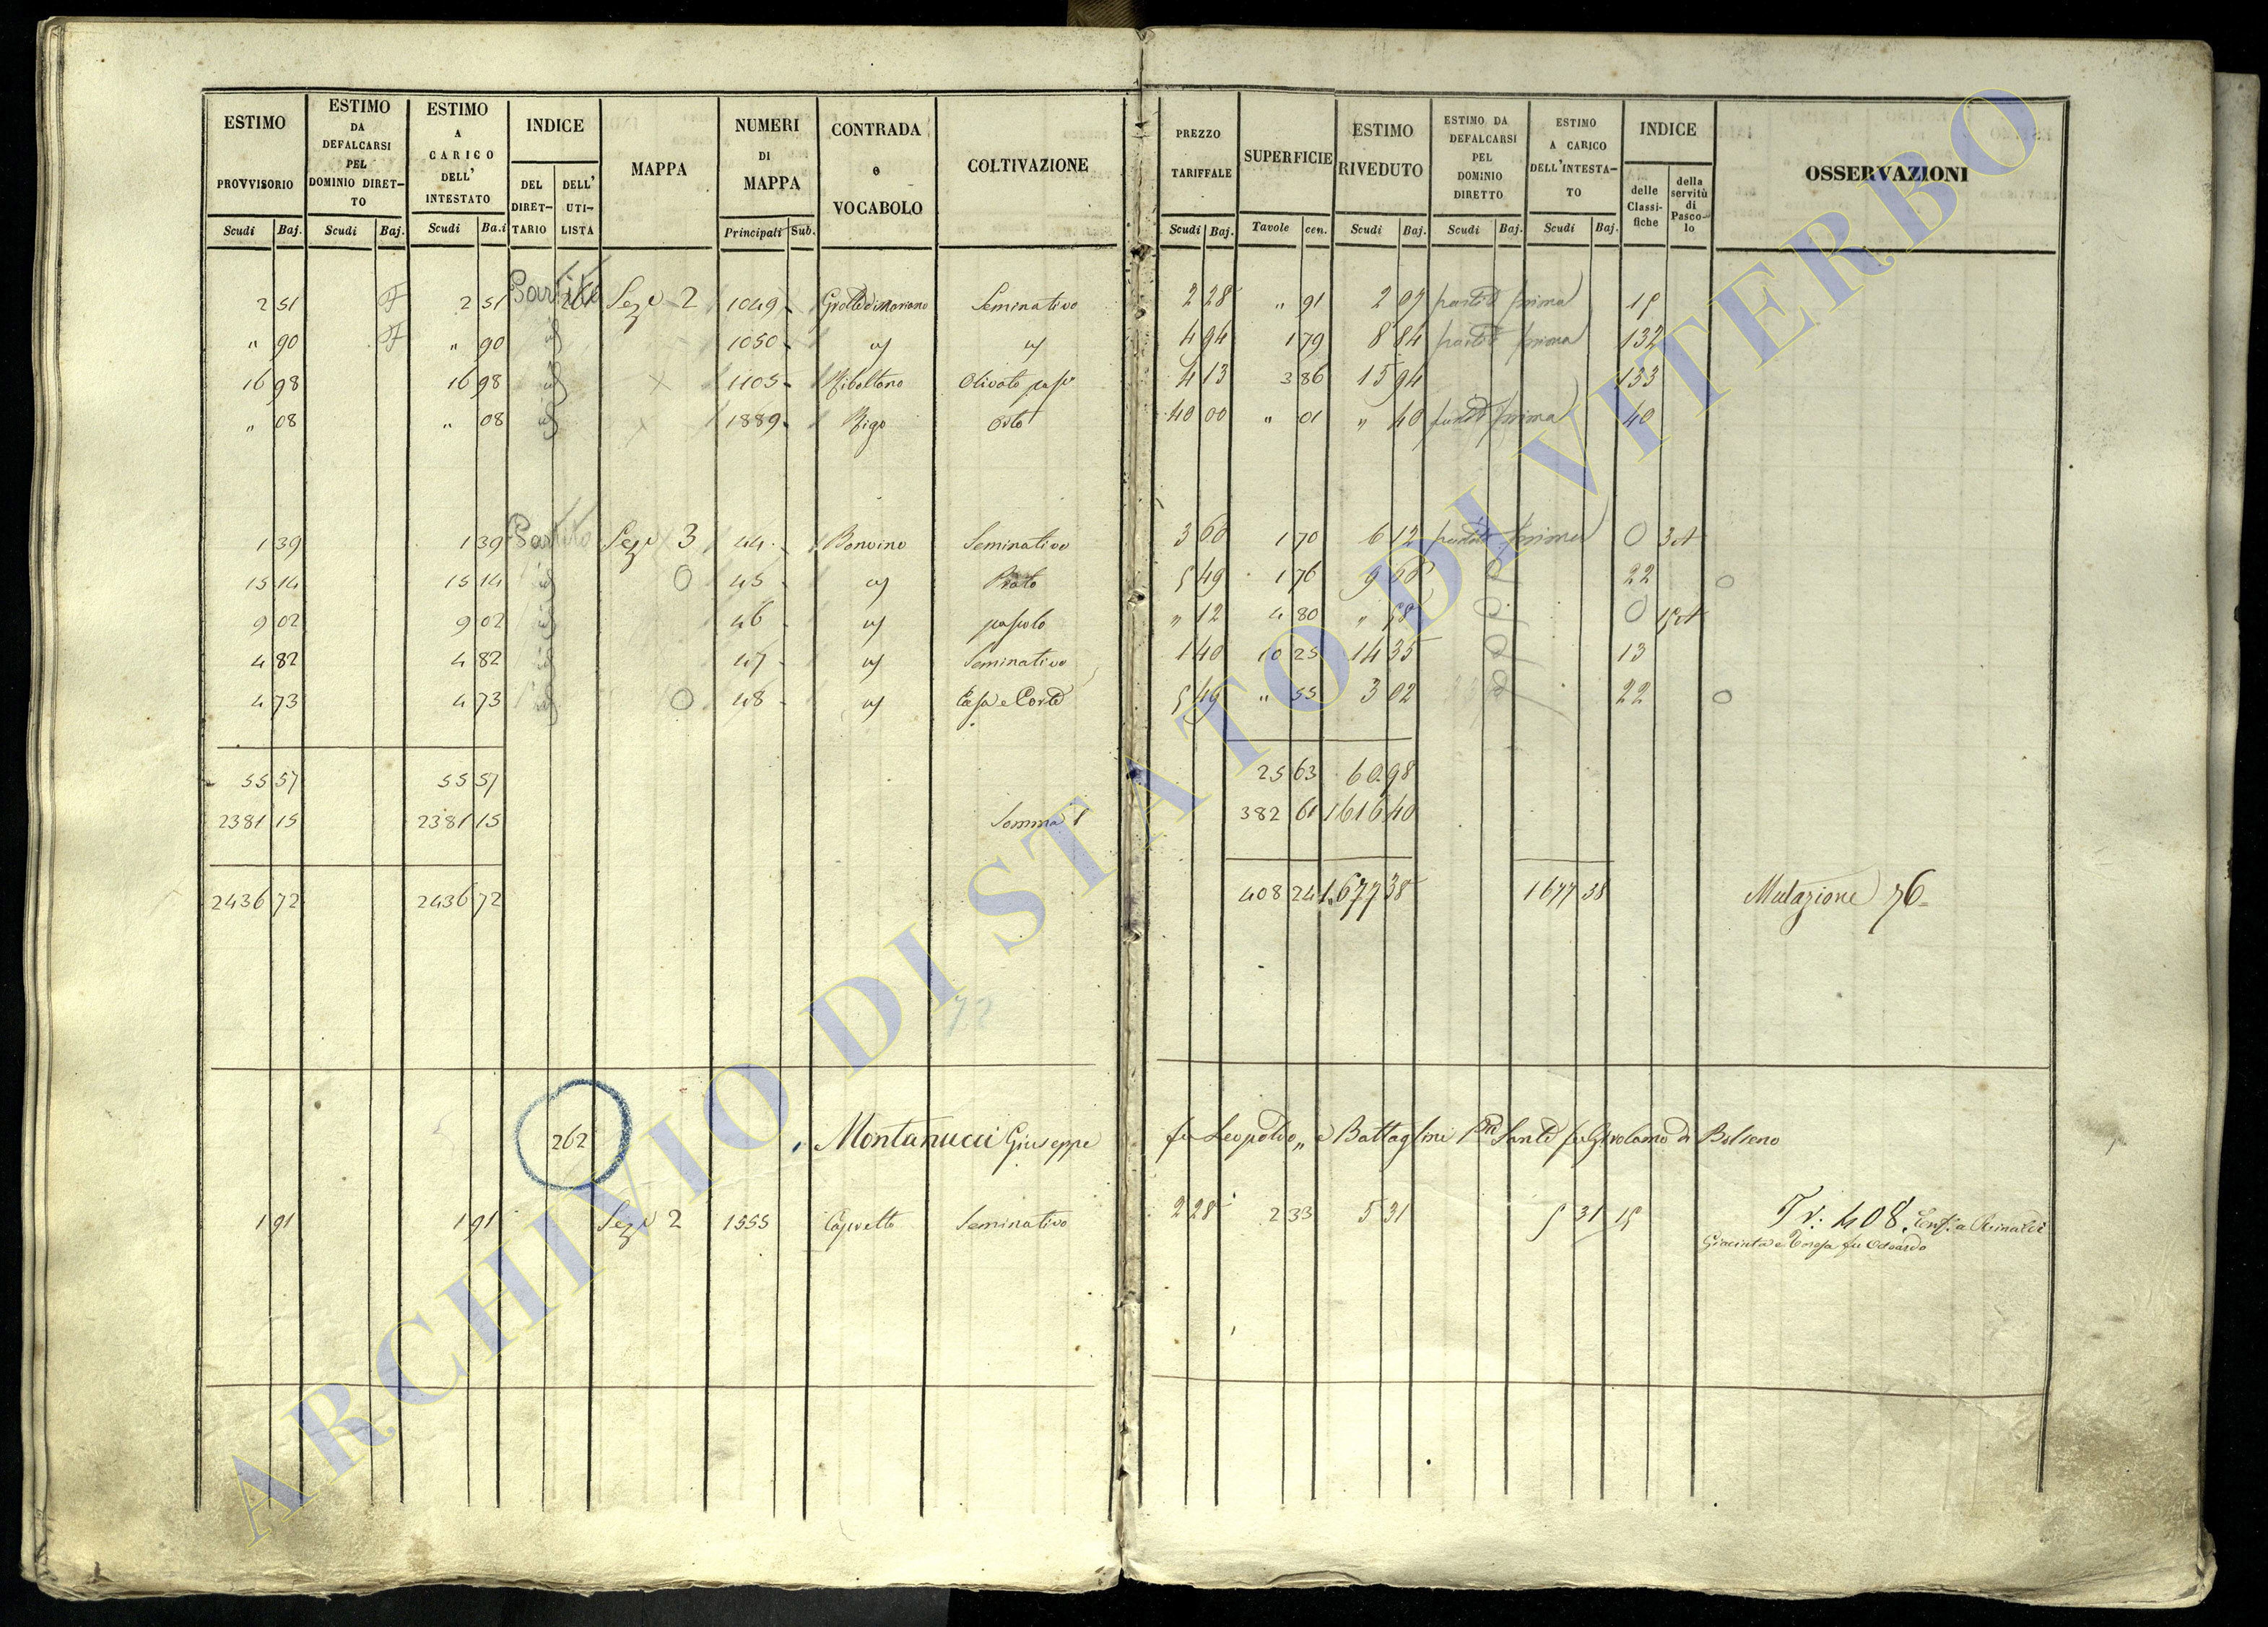 ESTIMO PROVVISORIO | ESTIMO DA DEFALCARSI PEL DOMINIO DIRETTO | ESTIMO A CARICO DELL' INTESTATO | INDICE | MAPPA | NUMERI DI MAPPA | CONTRADA e VOCABOLO | COLTIVAZIONE | PREZZO TARIFFALE | SUPERFICIE | ESTIMO RIVEDUTO | ESTIMO DA DEFALCARSI PEL DOMINIO DIRETTO | ESTIMO A CARICO DELL'INTESTATO | INDICE | OSSERVAZIONI
DEL DIRETTARIO | DELL' UTILISTA | delle Classifiche | della servitù di Pascolo
Scudi | Baj. | Scudi | Baj. | Scudi | Ba.i | Principali | Sub. | Scudi | Baj. | Tavole | cen. | Scudi | Baj. | Scudi | Baj. | Scudi | Baj.
2 51 | 2 51 | Partita 261 | Sez 2 | 1049 | Grotte di Mariano | Seminativo | 2 28 | " 91 | 2 07 | partita prima | 15
" 90 | " 90 | id | 1050 | id | id | 4 94 | 1 79 | 8 84 | partita prima | 132
16 98 | 16 98 | id | X | 1105 | Ribaltono | Olivato pasvo | 4 13 | 3 86 | 15 94 | 133
" 08 | " 08 | id | X | 1889 | Rigo | Orto | 40 00 | " 01 | " 40 | prima | 40
1 39 | 1 39 | Partita | Sez 3 | 44 | Bonvino | Seminativo | 3 60 | 1 70 | 6 12 | partita prima | 0 | 3 A
15 14 | 15 14 | id | O | 45 | id | Prato | 5 49 | 1 76 | 9 66 | 22 | O
9 02 | 9 02 | id | 46 | id | pascolo | " 12 | 4 80 | " 58 | 0 | 15 A
4 82 | 4 82 | id | 47 | id | Seminativo | 1 40 | 10 25 | 14 35 | 13
4 73 | 4 73 | id | O | 48 | id | Casa e Corte | 5 49 | " 55 | 3 02 | 22 | O
55 57 | 55 57 | 25 63 | 60 98
2381 15 | 2381 15 | Somma | 382 61 | 1616 40
2436 72 | 2436 72 | 408 24 | 1677 38 | 1677 38 | Mutazione 76
262 | Montanucci Giuseppe fu Leopoldo, e Battaglini Sante fu Girolamo di Bolseno
1 91 | 1 91 | Sez 2 | 1555 | Capretto | Seminativo | 2 28 | 2 33 | 5 31 | 5 31 | 15 | Tr: 408. Rinaldi
Giacinta e Teresa fu Odoardo
ARCHIVIO DI STATO DI VITERBO